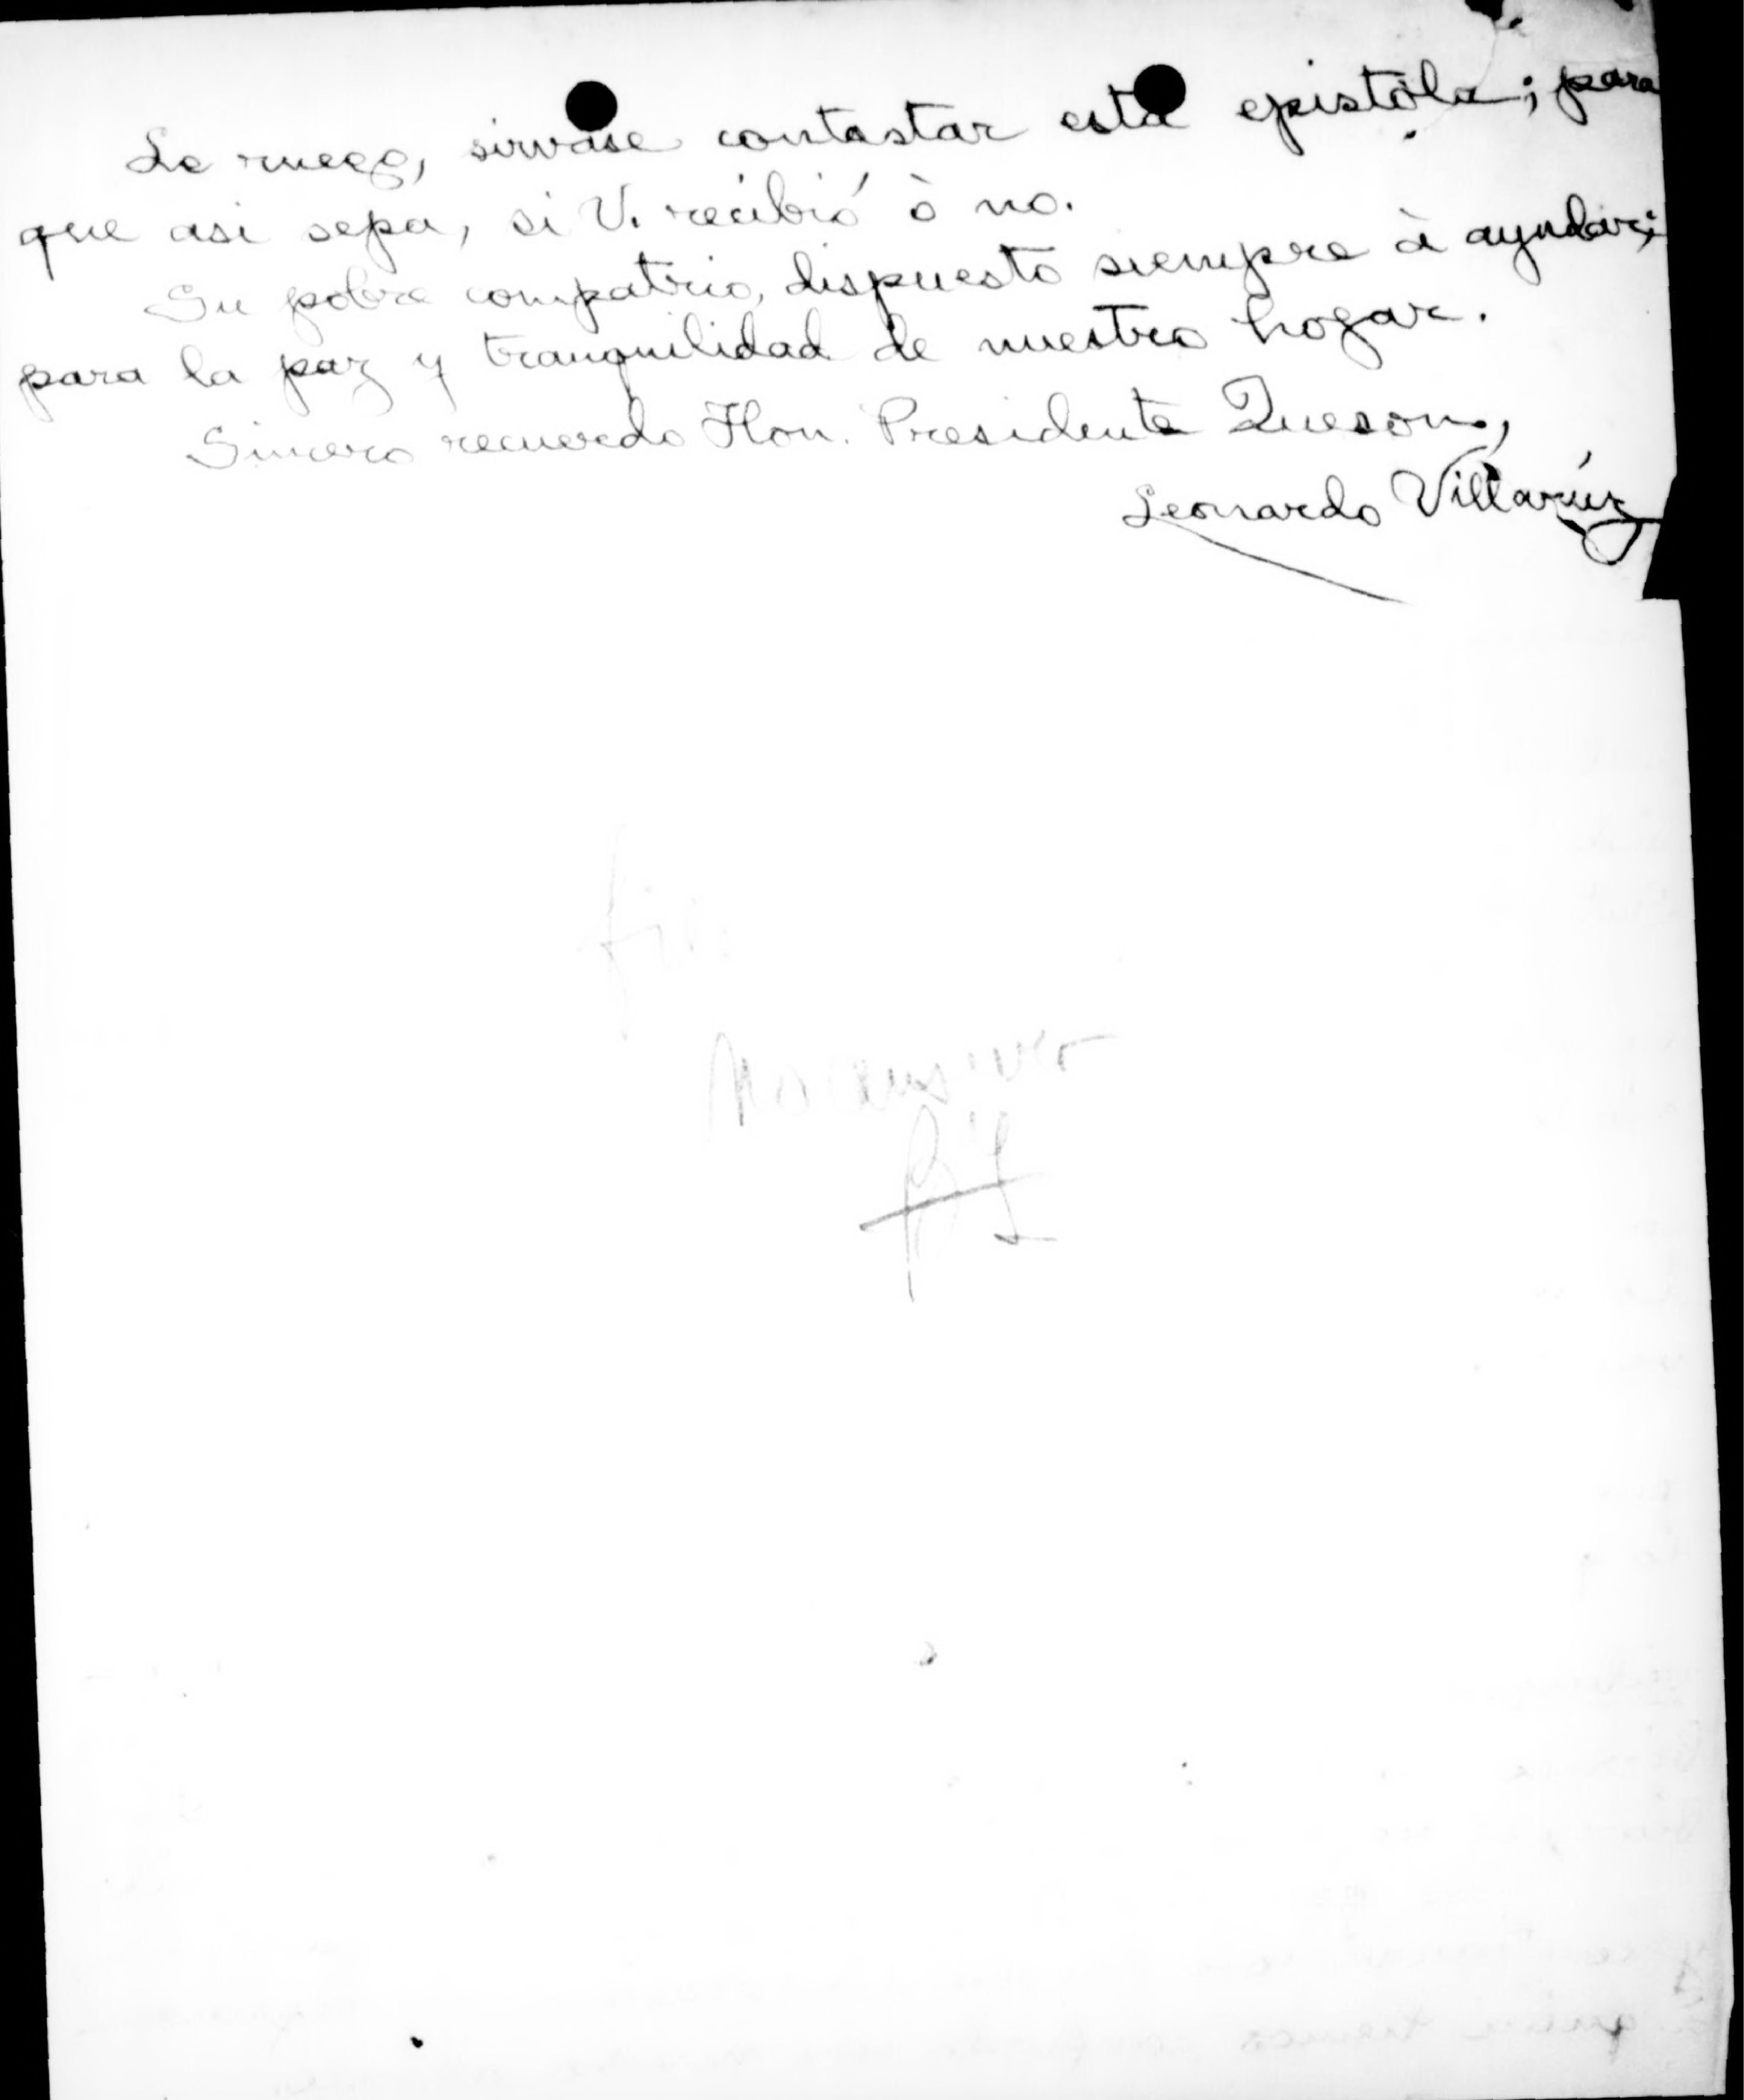 Le ruego, sirvase contestar esta epistola; para
que asi sepa, si V. recibió ò no.
Su pobre compatrio, dispuesto siempre à ayudar;
para la paz y tranquilidad de nuestro hogar.
Sincero recuerdo Hon. Presidente Queson,
Leonardo Villarúz
file
No answer